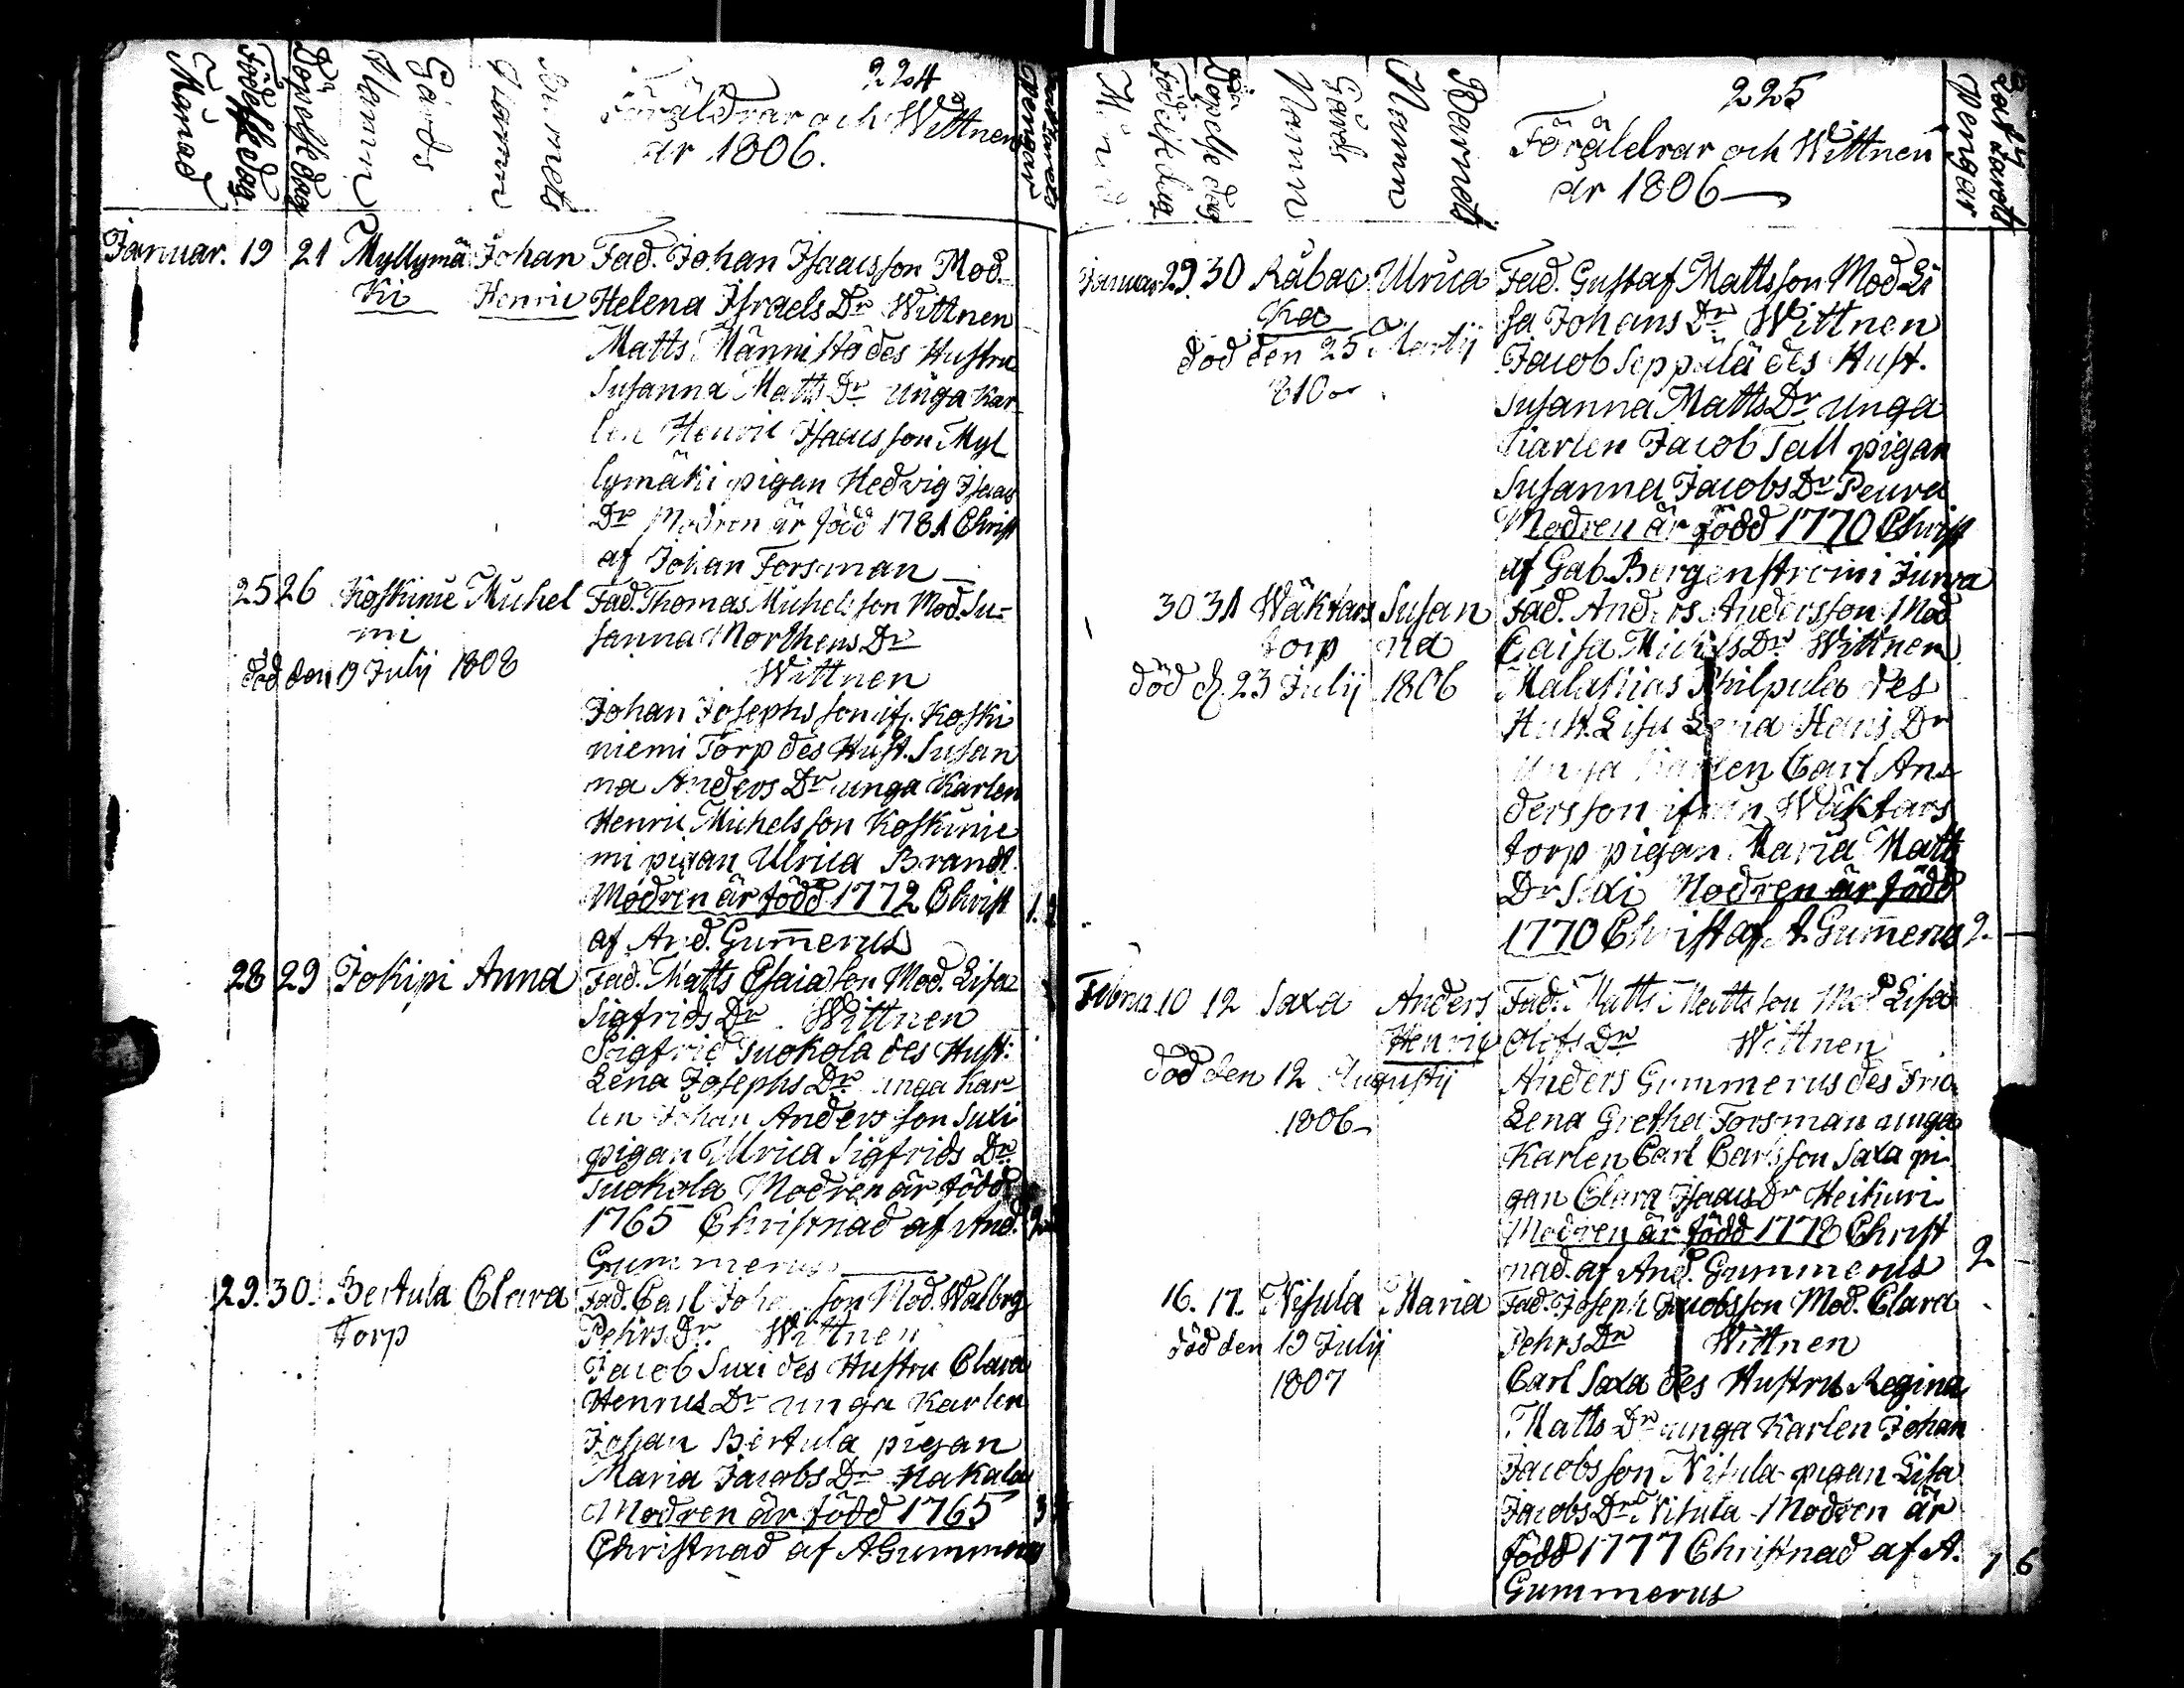 224
Månad
Födelsedag
Döpelsedag
Gårds Namn
Barnets Namn
Föräldrar och Wittnen
år 1806.
Januar. 19 21 Myllymä Johan Fad. Johan Isaacsson Mod.
ki Henric Helena Israels Dr Wittnen
Matts Männistö des Hustru
Susanna Matts Dr unga Kar
len Henric Isaacsson Myl
lymäki pigan Hedvig Isaacs
Dr Modren är född 1781 Christ
af Johan Forsman
25 26 Koskinie Michel Fad. Thomas Michelsson Mod. Su=
mi sanna Morthens Dr
död den 19 Julij 1808 Wittnen
Johan Josephsson ifr. Koski
niemi Torp des Hust. Susan
na Anders Dr unga Karlen
Henric Michelsson Koskinie
mi pigan Ulrica Brandt
Modren är född 1772 Christ
af And. Gum̅erus
28 29 Jokipi Anna Fad. Matts Esaiasson Mod. Lisa
Sigfrids Dr Wittnen
Sigfrid Suokola des Hust:
Lena Josephs Dr unga Kar
len Johan Andersson Suxi
pigan Ulrica Sigfrids Dr
Suokola Modren är född
1765 Christnad af And.
Gummerus
29. 30. Bertula Clara Fad. Carl Joha son Mod. Walbrg
Torp Pehrs Dr. Wittnen
Jacob Suxi des Hustru Clara
Henrics Dr unga Karlen
Johan Bertula pigan
Maria Jacobs Dr Nakala
Modren är född 1765 3
Christnad af A. Gummerus
225
Månad
Födelsedag
Döpelsedag
Gårds Namn
Barnets Namn
Föräldrar och Wittnen
år 1806
Pengar
Januar. 29. 30 Råbac Ulrica Fad. Gustaf Mattsson Mod. Li
ka sa Johans Dr Wittnen
död den 25 Martij Jacob Seppälä des Hust.
810 Susanna Matts Dr unga
Karlen Jacob Tall pigan
Susanna Jacobs Dr Peura
Modren är född 1770 Christ
af Gab. Bergenström i Jurva
30 31 Wäktars Susan Fad. Anders Andersson Mod
torp na Caisa Michels Dr Wittnen
död d. 23 Julij 1806 Malakias Philpula des
Hust. Lisa Lena Hans Dr
unga Karlen Carl An=
dersson ifrån Wäktars
torp pigan Maria Matts
Dr Suxi Modren är född
1770 Christ af A. Gum̅erus 2.
Februa. 10 12 Saxa Anders Fad. Matts Mattsson Mod Lisa
Henric Olofs Dr Wittnen
död den 12 Augustij Anders Gummerus des Fru
1806 Lena Gretha Forsman unga
Karlen Carl Carlsson Saxa pi
gan Clara Isaacs Dr Heikuri
Modren är född 1778 Christ
nad. af And. Gummerus 2
16. 17. Nisula Maria Fad. Joseph Jacobsson Mod. Clara
död den 19 Julij Pehrs Dr Wittnen
1807 Carl Saxa des Hustru Regina
Matts Dr unga Karlen Johan
Jacobsson Nisula pigan Lisa
Jacobs Dr Nisula Modren är
född 1777 Christnad af A. 1 6
Gummerus